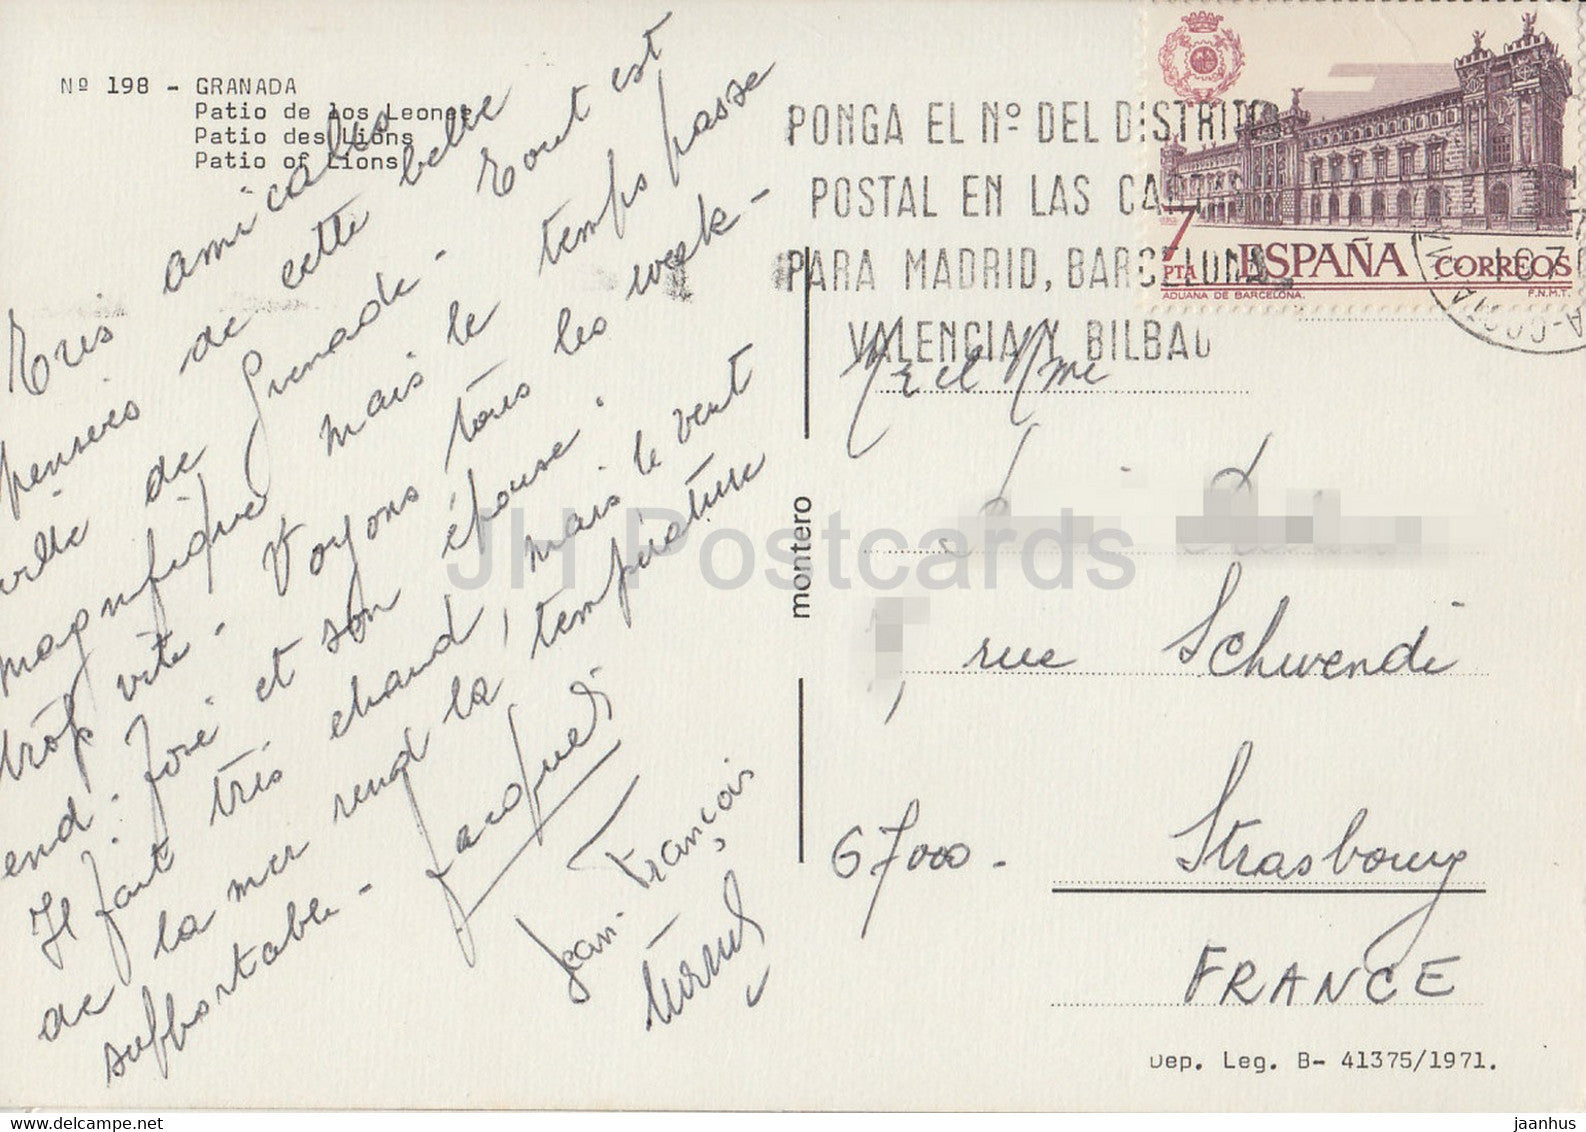 Nº 198 - GRANADA
Patio de los Leones
Patio des Lions
Patio of Lions
Très amicales
pensées de cette belle
ville de Grenade. Tout est
magnifique mais le temps passe
trop vite. Voyons tous les week-
end. José et son épouse.
Il fait très chaud, mais le vent
de la mer rend la température
supportable. Jacqueli
Jean-François
montero
PONGA EL Nº DEL DISTRITO
POSTAL EN LAS CARTAS
PARA MADRID, BARCELONA
VALENCIA Y BILBAO
7 PTA ESPAÑA CORREOS
ADUANA DE BARCELONA. F.N.M.T.
Mr et Mme
, rue Schwendi
67000 - Strasbourg
FRANCE
Dep. Leg. B- 41375/1971.
JH Postcards
www.delcampe.net
jaanhus